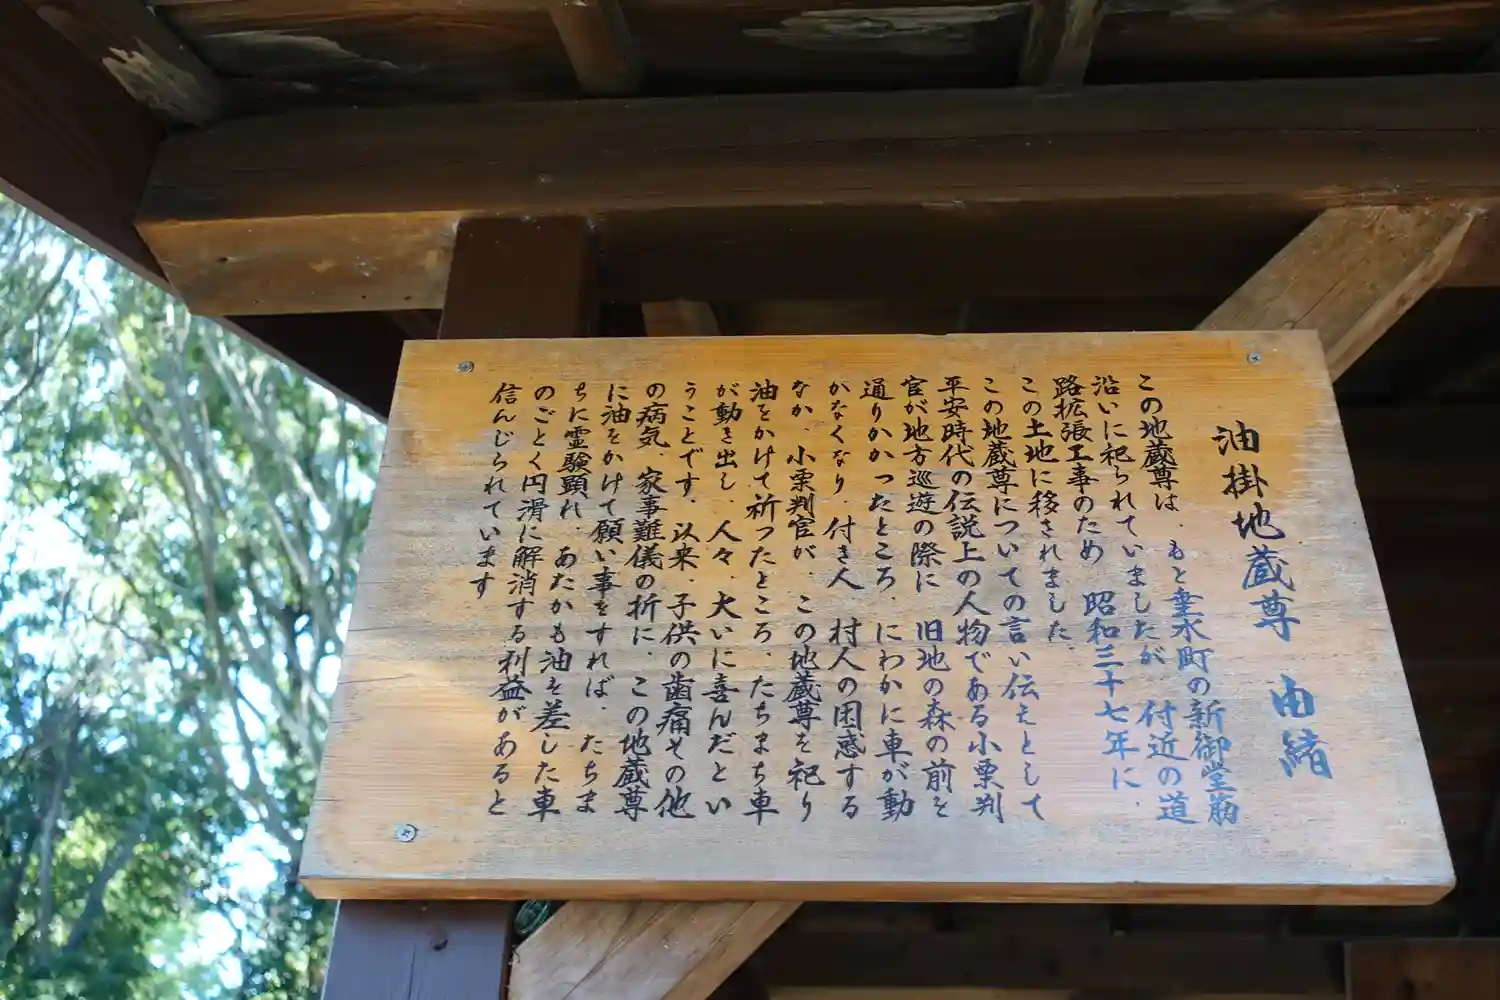 油掛地蔵尊 由緒
この地蔵尊は、もと垂水町の新御堂筋
沿いに祀られていましたが、付近の道
路拡張工事のため、昭和三十七年に、
この土地に移されました。
この地蔵尊についての言い伝えとして
平安時代の伝説上の人物である小栗判
官が地方巡遊の際に、旧地の森の前を
通りかかったところ、にわかに車が動
かなくなり、付き人、村人の困惑する
なか、小栗判官が、この地蔵尊を祀り
油をかけて祈ったところ、たちまち車
が動き出し、人々、大いに喜んだとい
うことです。以来、子供の歯痛その他
の病気、家事難儀の折に、この地蔵尊
に油をかけて願い事をすれば、たちま
ちに霊験顕れ、あたかも油を差した車
のごとく円滑に解消する利益があると
信んじられています